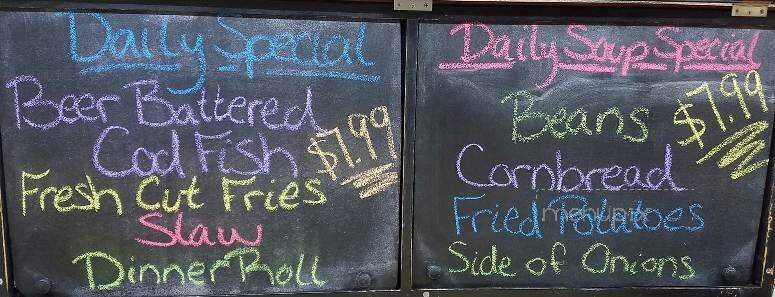 Daily Special
Beer Battered
Cod Fish $7.99
Fresh Cut Fries
Slaw
Dinner Roll
Daily Soup Special
Beans $7.99
Cornbread
Fried Potatoes
Side of Onions